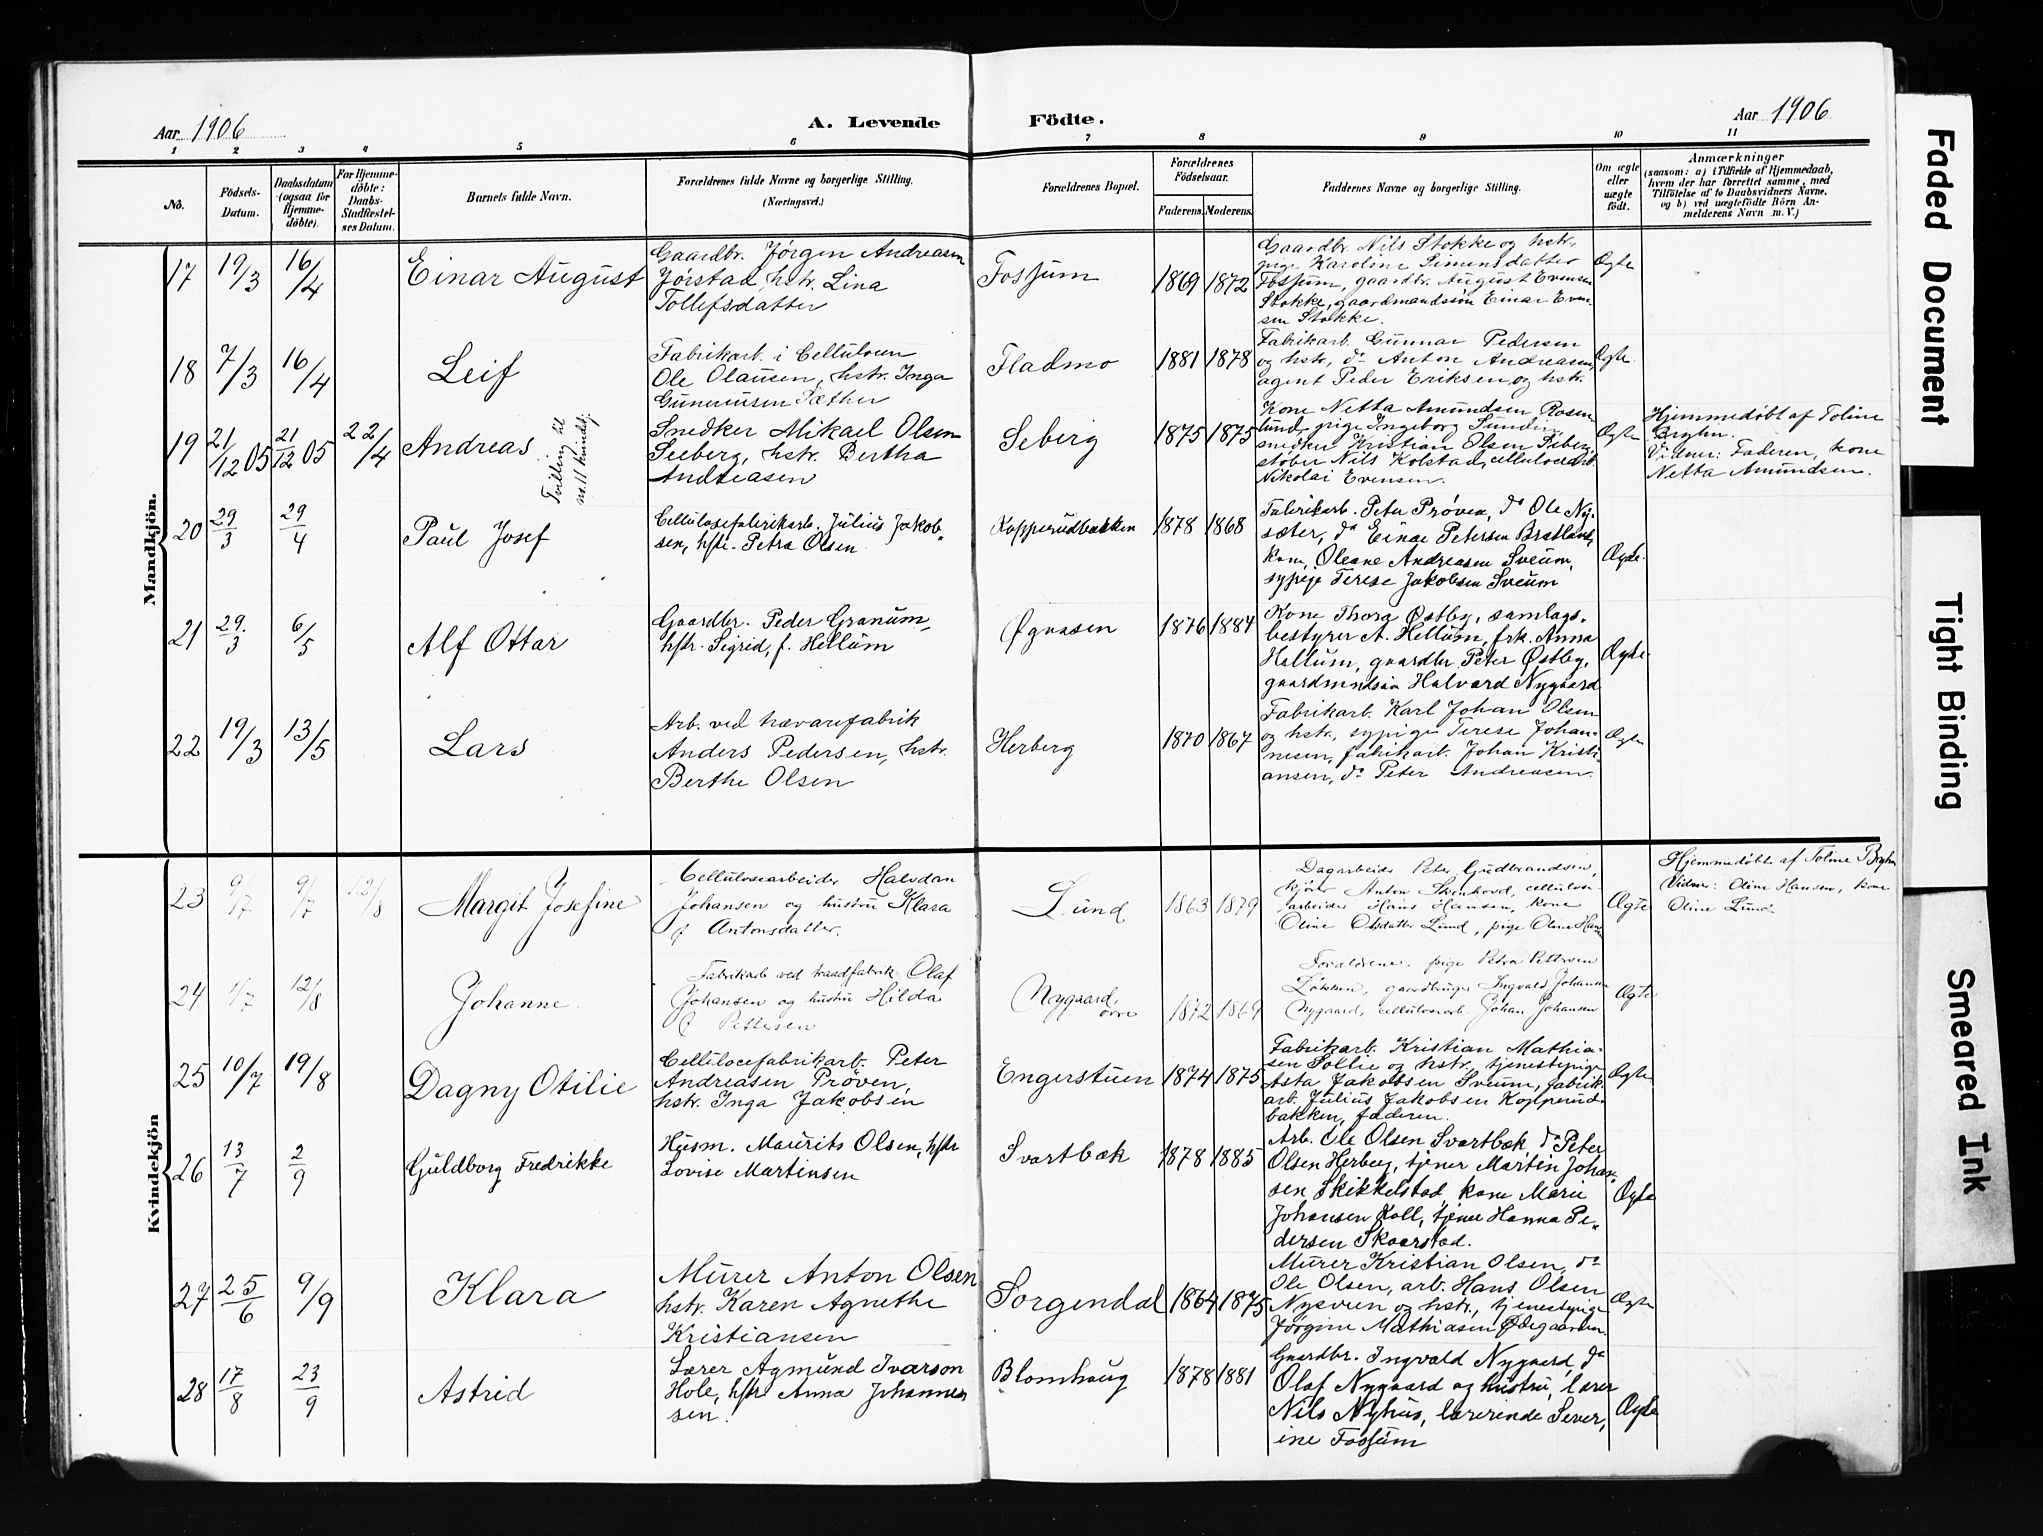 Aar 1906
A. Levende
Födte.
Aar 1906
1 2 3 4 5 6 7 8 9 10 11
No.
Födsels-
Datum.
Daabsdatum
(ogsaa for
Hjemme-
döbte).
For Hjemme-
döbte:
Daabs-
Stadfæstel-
ses Datum.
Barnets fulde Navn.
Forældrenes fulde Navne og borgerlige Stilling.
(Næringsvei.)
Forældrenes Bopæl.
Forældrenes
Födselsaar.
Faderens. Moderens.
Faddernes Navne og borgerlige Stilling.
Om ægte
eller
uægte
födt.
Anmærkninger
(saasom: a) i Tilfælde af Hjemmedaab,
hvem der har forrettet samme, med
Tilföielse af to Daabsvidners Navne,
og b) ved uægtefödte Börn An-
melderens Navn m. V.)
Mandkjön.
17 19/3 16/4 Einar August
Gaardbr. Jørgen Andreasen
Jørstad, hstr. Lina
Tollefsdatter
Fossum 1869 1872
Gaardbr. Nils Stokke og hstr.,
pige Karoline Simensdatter
Fossum, gaardbr. August Evensen
Stokke, gaardmandsøn Einar Even-
sen Stokke.
Ægte
18 7/3 16/4 Leif
Fabrikarb. i Cellulosen
Ole Olausen, hstr. Inga
Gunerusen Sæther
Fladmo 1881 1878
Fabrikarb. Gunnar Pedersen
og hstr., do Anton Andreasen,
agent Peder Eriksen og hstr.
Ægte
19 21/12 05 21/12 05 22/4 Andreas
Tvilling til
no. 11 kvindekj.
Snedker Mikael Olsen
Seeberg, hstr. Bertha
Andreasen
Seberg 1875 1875
Kone Netta Amundsen Rosen-
lund, pige Ingeborg Sundin,
snedker Kristian Olsen Seberg,
støber Nils Kolstad, cellulosearb.
Nikolai Evensen.
Ægte
Hjemmedøbt af Toline
Bryhn.
Vidner: Faderen, kone
Netta Amundsen.
20 29/3 29/4 Paul Josef
Cellulosefabrikarb. Julius Jakob-
sen, hstr. Petra Olsen
Kopperudbakken 1878 1868
Fabrikarb. Peter Prøven, do Ole Ny-
sæter, do Einar Petersen Bratland,
kone Oleane Andreasen Sveum,
sypige Terese Jakobsen Sveum
Ægte.
21 29/3 6/5 Alf Ottar
Gaardbr. Peder Granum,
hstr. Sigrid, f. Hellum
Øgaasen 1876 1884
Kone Thora Østby, samlags-
bestyrer A. Hellum, frk. Anna
Hellum, gaardbr. Peter Østby,
gaardmndsøn Halvard Nygaard
Ægte.
22 19/3 13/5 Lars
Arb. ved trævarefabrik
Anders Pedersen, hstr.
Berthe Olsen
Herberg 1870 1867
Fabrikarb. Karl Johan Olsen
og hstr., sypige Terese Johan-
nesen, fabrikarb. Johan Kristi-
ansen, do Peter Andreasen.
Ægte
Kvindekjön
23 9/7 9/7 12/8 Margit Josefine
Cellulosearbeider Halvdan
Johansen og hustru Klara
f Antonsdatter.
Lund 1863 1879
Dagarbeider Peter Gudbrandsen,
kjører Anton Skinhovd, cellulose-
arbeider Hans Hansen, kone
Oline Olsdatter Lund, pige Oline Hansen
Ægte
Hjemmedøbt af Toline Bryhn
Vidner: Oline Hansen, kone
Oline Lund.
24 1/7 12/8 Johanne
Fabrikarb ved traadfabrik Olaf
Johansen og hustru Hilda
f Pettersen
Nygaard
øvre 1872 1869
Forældrene, pige Petra Pettersen
Løkken, gaardbruger Ingvald Johansen
Nygaard, cellulosearb. Johan Johansen
Ægte
25 10/7 19/8 Dagny Otilie
Cellulocefabrikarb. Peter
Andreasen Prøven,
hstr. Inga Jakobsen
Engerstuen 1874 1875
Fabrikarb. Kristian Mathia-
sen Sollie og hstr., tjenestepige
Asta Jakobsen Sveum, fabrik-
arb. Julius Jakobsen Kopperud-
bakken, faderen.
Ægte
26 13/7 2/9 Guldborg Fredrikke
Husm. Maurits Olsen, hstr
Lovise Martinsen
Svartbæk 1878 1885
Arb. Ole Olsen Svartbæk do Peter
Olsen Herberg, tjener Martin Johan-
sen Skikkelstad, kone Marie
Johansen Koll, tjener Hanna Pe-
dersen Skaarstad.
Ægte
27 25/6 9/9 Klara
Murer Anton Olsen
hstr. Karen Agnethe
Kristiansen
Sorgendal 1864 1875
Murer Kristian Olsen, do
Ole Olsen, arb. Hans Olsen
Nysveen og hstr., tjenestepige
Jørgine Mathiasen Ødegaarden.
Ægte
28 17/8 23/9 Astrid
Lærer Agmund Ivarson
Hole, hstr Anna Johanne-
sen.
Blomhaug 1878 1881
Gaardbr. Ingvald Nygaard, do
Olaf Nygaard og hustru, lærer
Nils Nyhus, lærerinde Sever-
ine Fossum
Ægte
Faded Document
Tight Binding
Smeared Ink